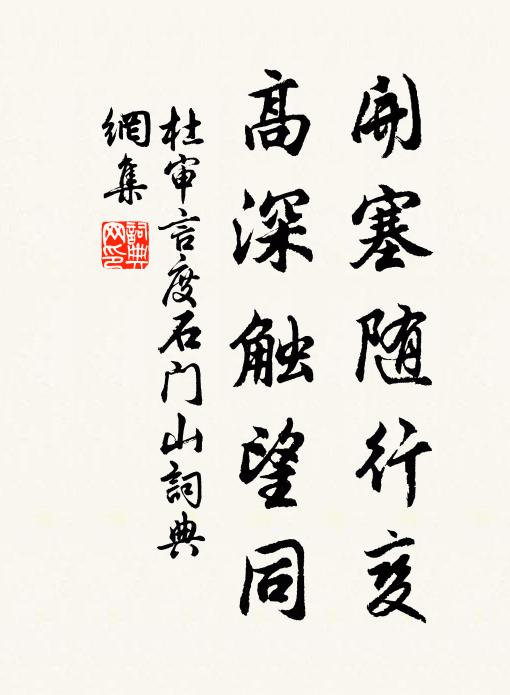 開塞随行变
高深触望同
杜审言度石门山詞典
網集
詞典网印